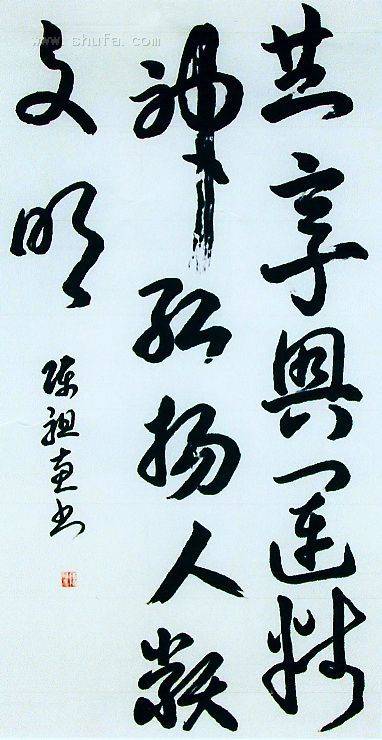 www.shufa.com
共享奥運精
神弘揚人類
文明
陈祖书